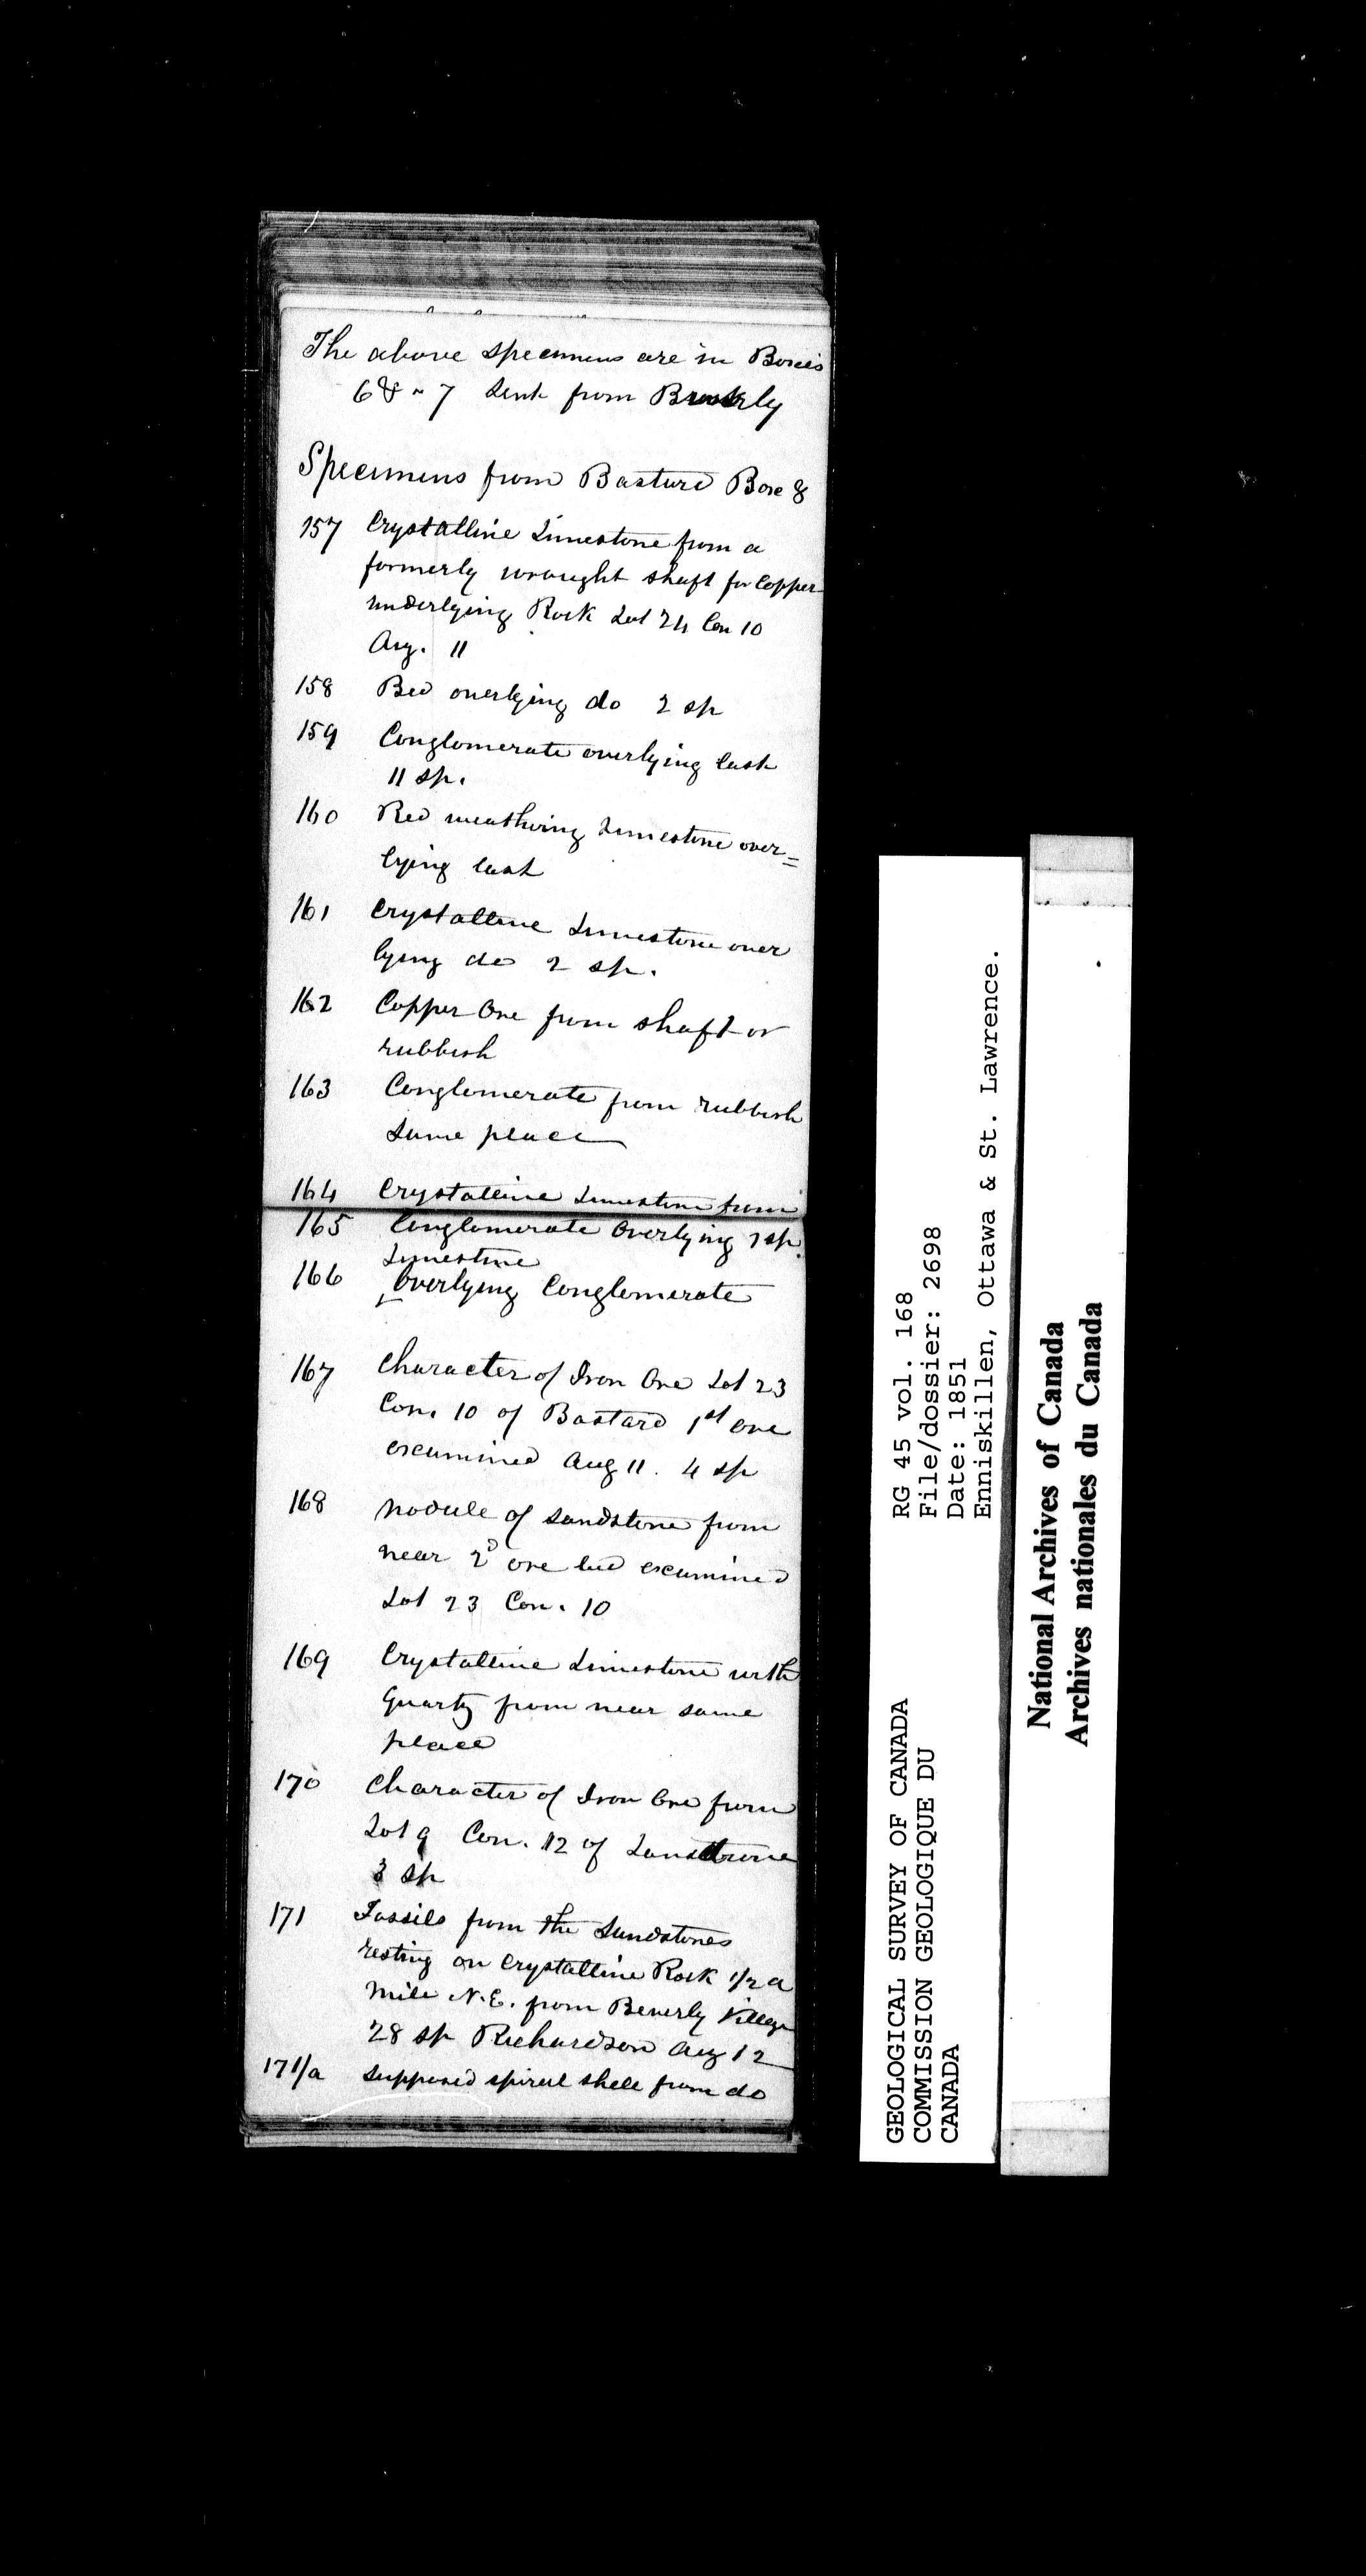 The above specimens are in Boxes
6 & 7 Sent from
Specimens from Bastard Box 8
157 Crystalline Limestone from a
formerly wrought shaft for Copper
underlying Rock Lot 24 Con 10
Aug. 11
158 Bed overlying do 2 sp
159 Conglomerate overlying last
11 sp.
160 Red weathering Limestone over=
lying last
161 Crystalline Limestone over
lying do 2 sp.
162 Copper Ore from shaft or
rubbish
163 Conglomerate from rubbish
same place
164 Crystalline Limestone from
165 Conglomerate Overlying sp.
Limestone
166 Overlying Conglomerate
167 Character of Iron Ore Lot 23
Con. 10 of Bastard 1st ore
examined Aug 11. 4 sp
168 Nodule of Sandstone from
near 2d ore bed examined
Lot 23 Con. 10
169 Crystalline Limestone with
Quartz from near same
place
170 Character of Iron Ore from
Lot 9 Con. 12 of Lansdowne
3 sp
171 Fossils from the Sandstones
resting on Crystalline Rock 1/2 a
mile N.E. from Beverly Village
28 sp Richardson Aug 12
171/a supposed spiral shell from do
GEOLOGICAL SURVEY OF CANADA
COMMISSION GEOLOGIQUE DU
CANADA
RG 45 vol. 168
File/dossier: 2698
Date: 1851
Enniskillen, Ottawa & St. Lawrence.
National Archives of Canada
Archives nationales du Canada